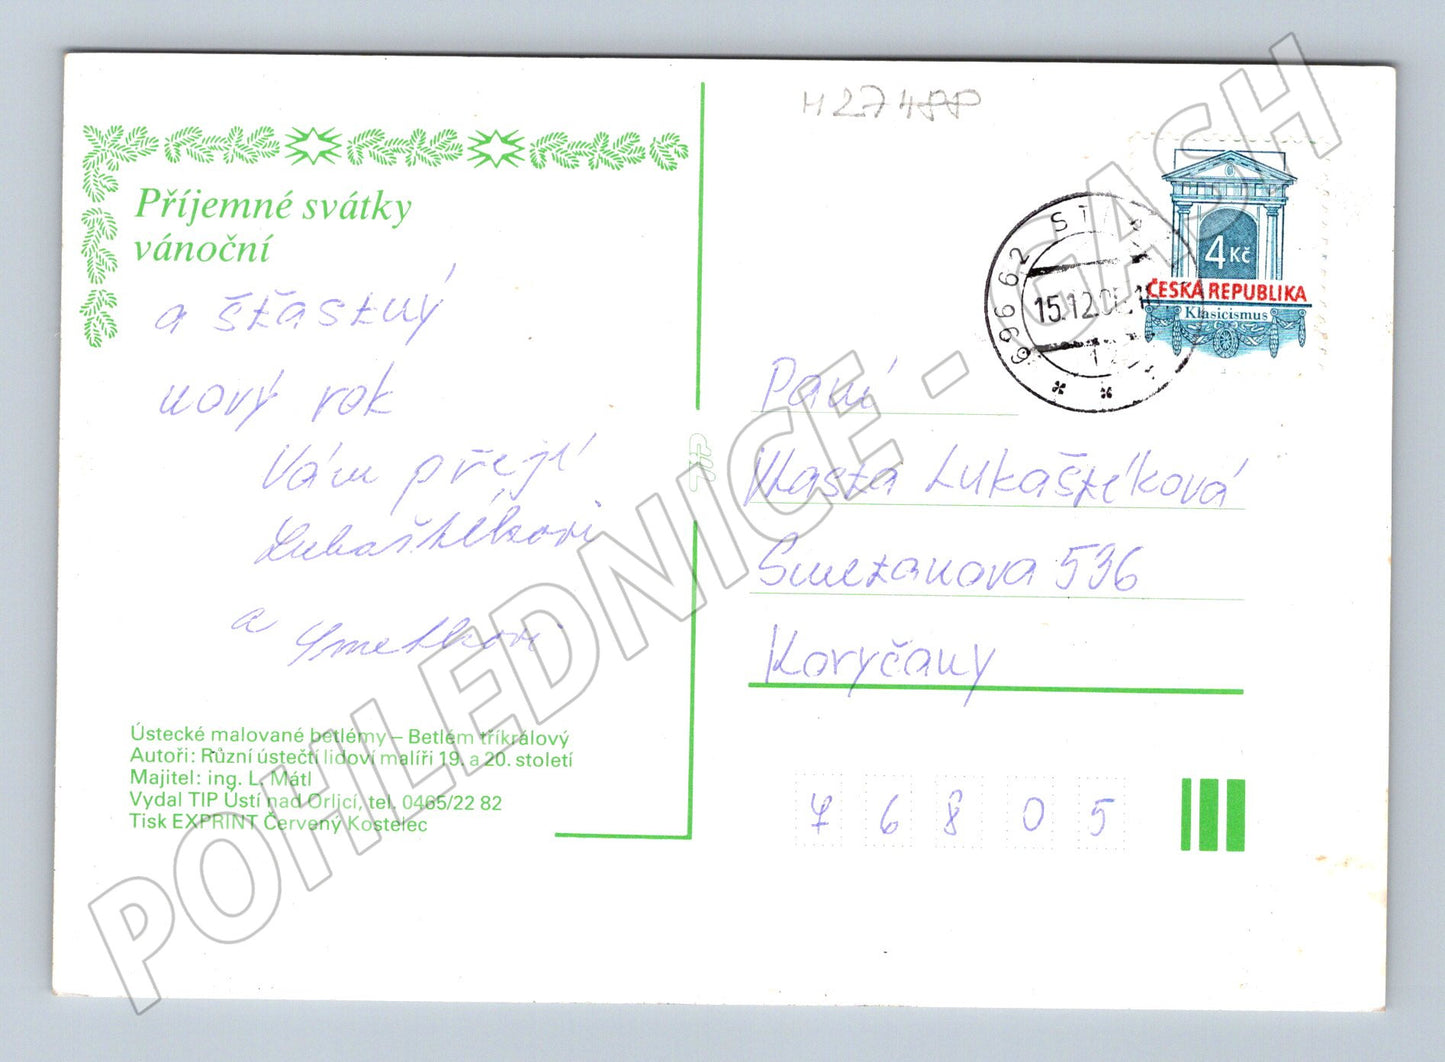 H274PP
Příjemné svátky
vánoční
a šťastný
nový rok
Vám přejí
Lukaštíkovi
a
4 Kč
ČESKÁ REPUBLIKA
Klasicismus
696 62 ST
15.12.0
TIP
Paní
Vlasta Lukaštíková
Smetanova 536
Koryčany
76805
Ústecké malované betlémy – Betlém tříkrálový
Autoři: Různí ústečtí lidoví malíři 19. a 20. století
Majitel: ing. L. Mátl
Vydal TIP Ústí nad Orlicí, tel. 0465/22 82
Tisk EXPRINT Červený Kostelec
POHLEDNICE - GASH